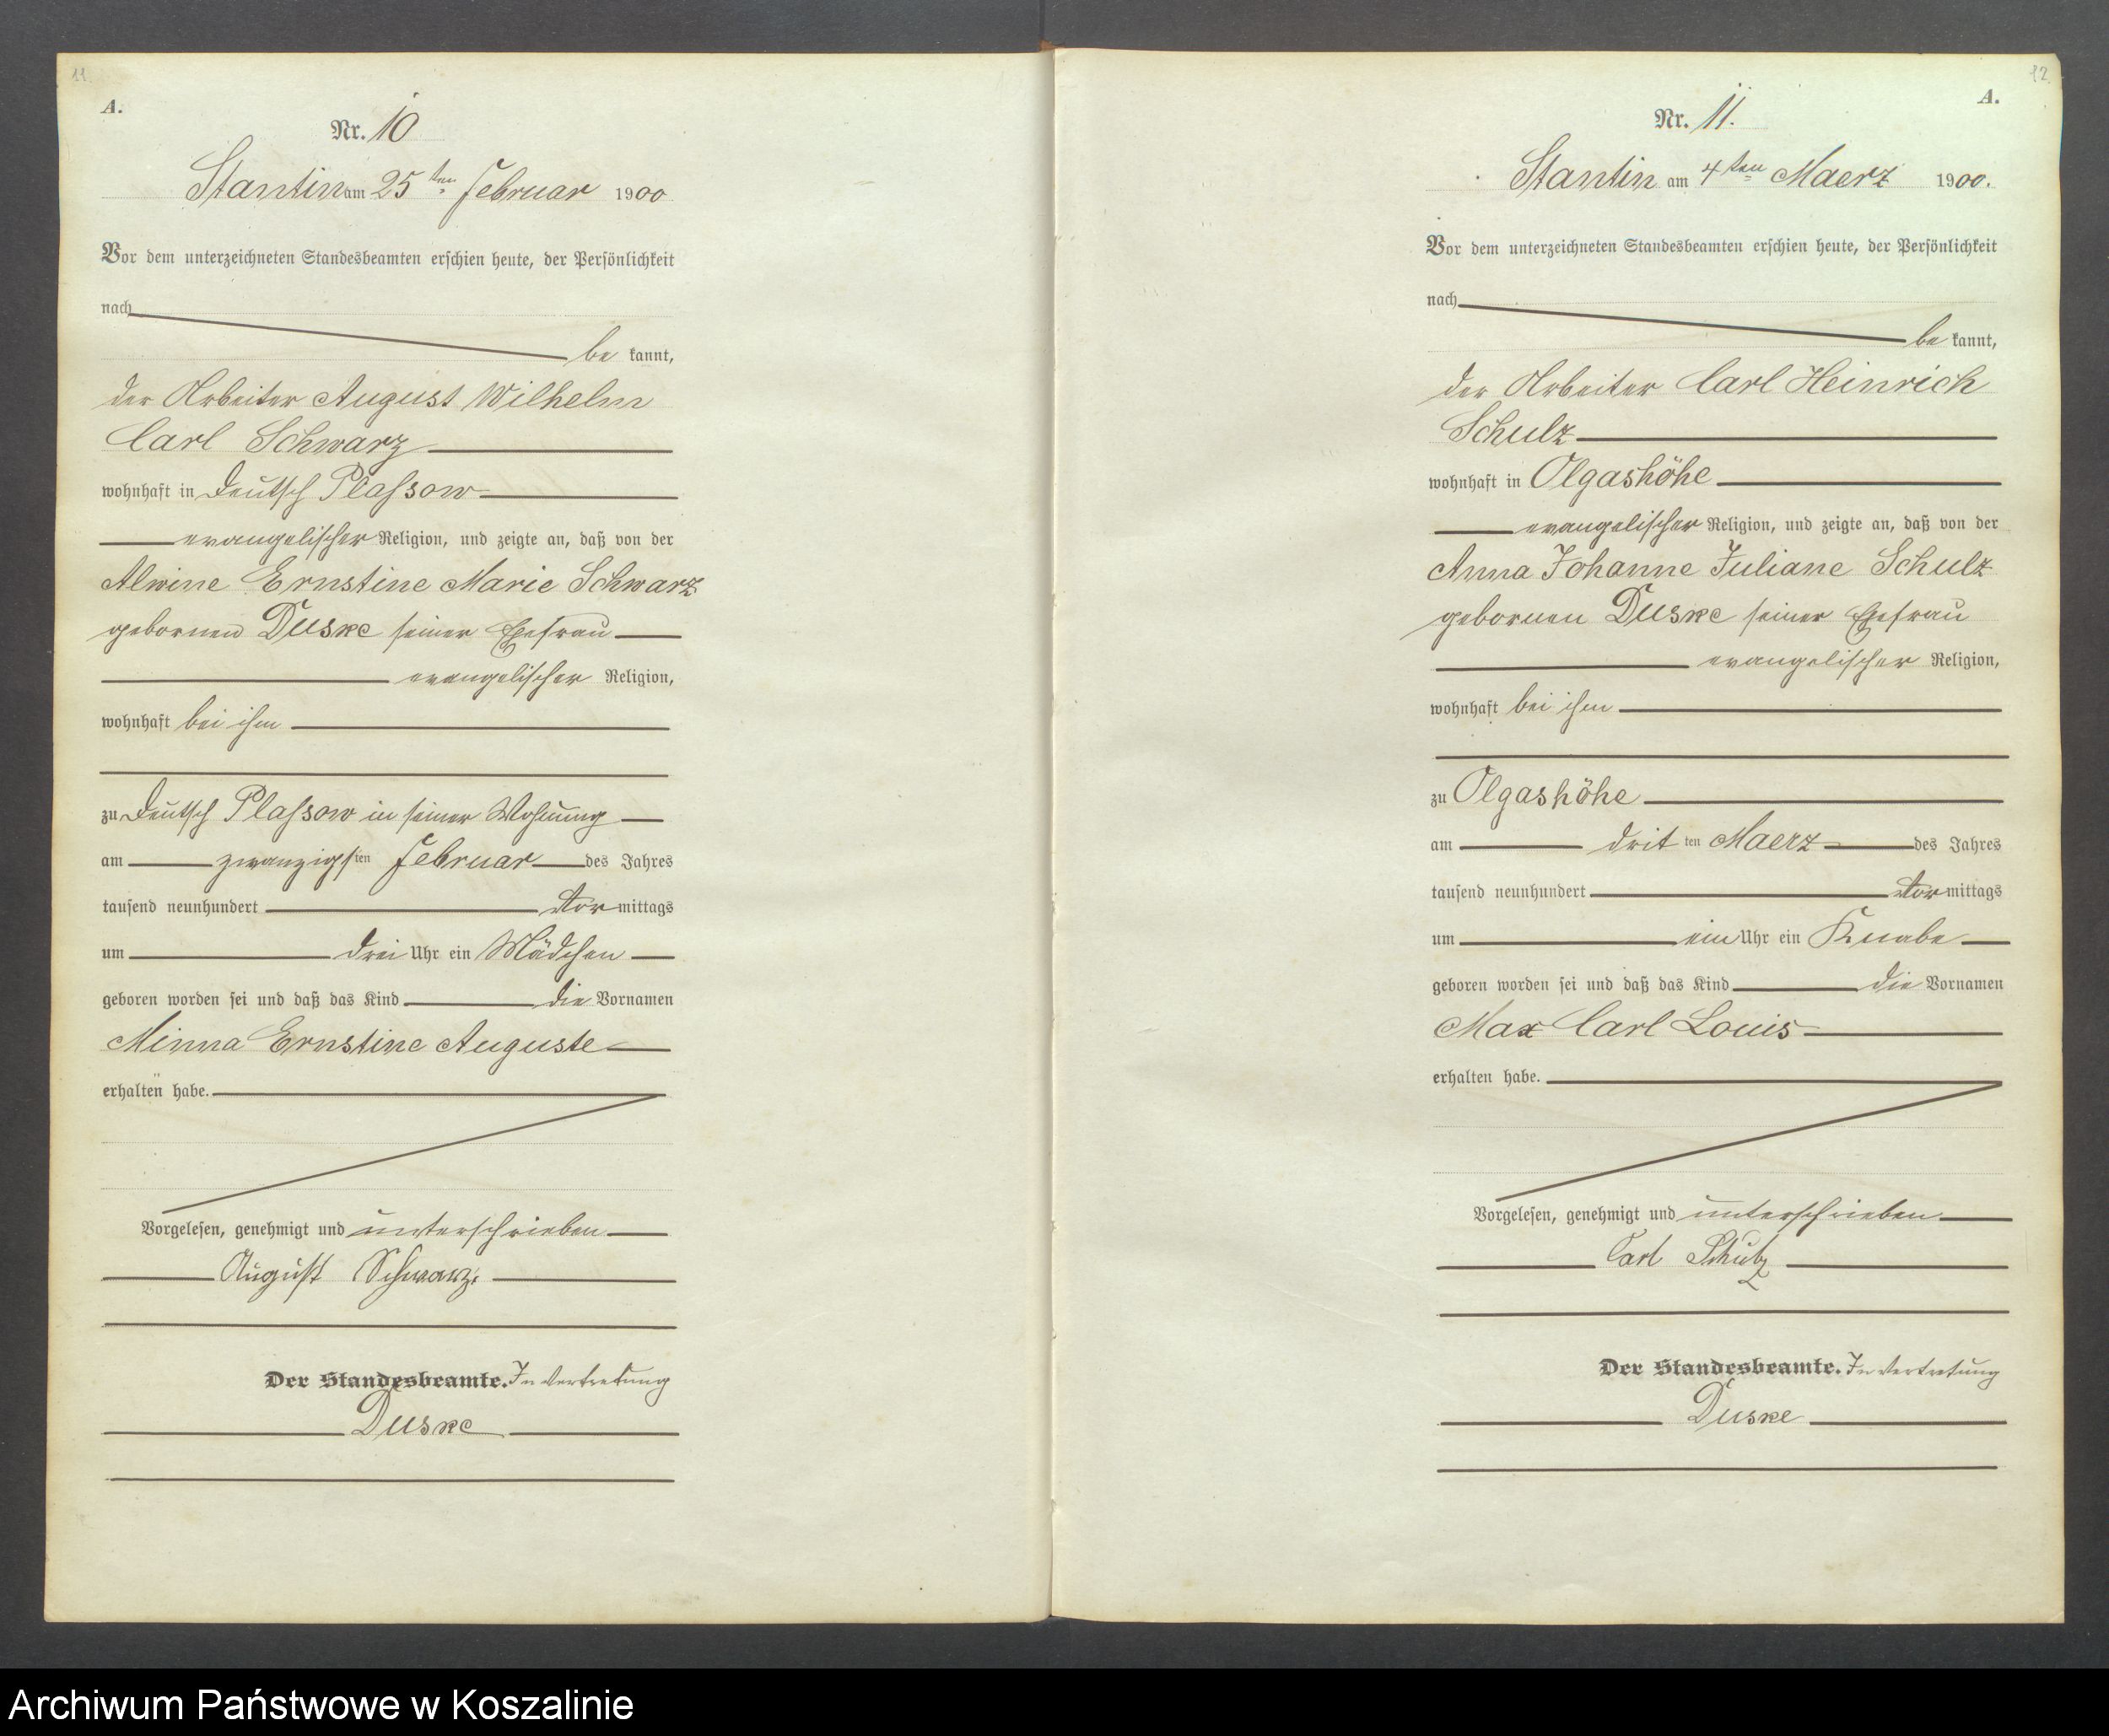 11.
A.
Nr. 10
Stantin am 25ten Februar 1900
Vor dem unterzeichneten Standesbeamten erschien heute, der Persönlichkeit
nach
be kannt,
der Arbeiter August Wilhelm
Carl Schwarz
wohnhaft in Deutsch Plassow
evangelischer Religion, und zeigte an, daß von der
Alwine Ernstine Marie Schwarz
gebornen Duske seiner Ehefrau
evangelischer Religion,
wohnhaft bei ihm
zu Deutsch Plassow in seiner Wohnung
am zwanzigsten Februar des Jahres
tausend neunhundert Vor mittags
um drei Uhr ein Mädchen
geboren worden sei und daß das Kind die Vornamen
Minna Ernstine Auguste
erhalten habe.
Vorgelesen, genehmigt und unterschrieben
August Schwarz.
Der Standesbeamte. In Vertretung
Duske
12.
A.
Nr. 11.
Stantin am 4ten Maerz 1900.
Vor dem unterzeichneten Standesbeamten erschien heute, der Persönlichkeit
nach
be kannt,
der Arbeiter Carl Heinrich
Schulz
wohnhaft in Olgashöhe
evangelischer Religion, und zeigte an, daß von der
Anna Johanne Juliane Schulz
gebornen Duske seiner Ehefrau
evangelischer Religion,
wohnhaft bei ihm
zu Olgashöhe
am drit ten Maerz des Jahres
tausend neunhundert Vor mittags
um ein Uhr ein Knabe
geboren worden sei und daß das Kind die Vornamen
Max Carl Louis
erhalten habe.
Vorgelesen, genehmigt und unterschrieben
Carl Schulz
Der Standesbeamte. In Vertretung
Duske
Archiwum Państwowe w Koszalinie